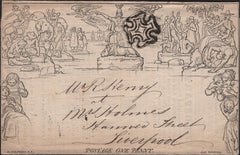 Mr R Kenny
at
Mrs Holmes
Hanover Street
Liverpool
POSTAGE ONE PENNY.